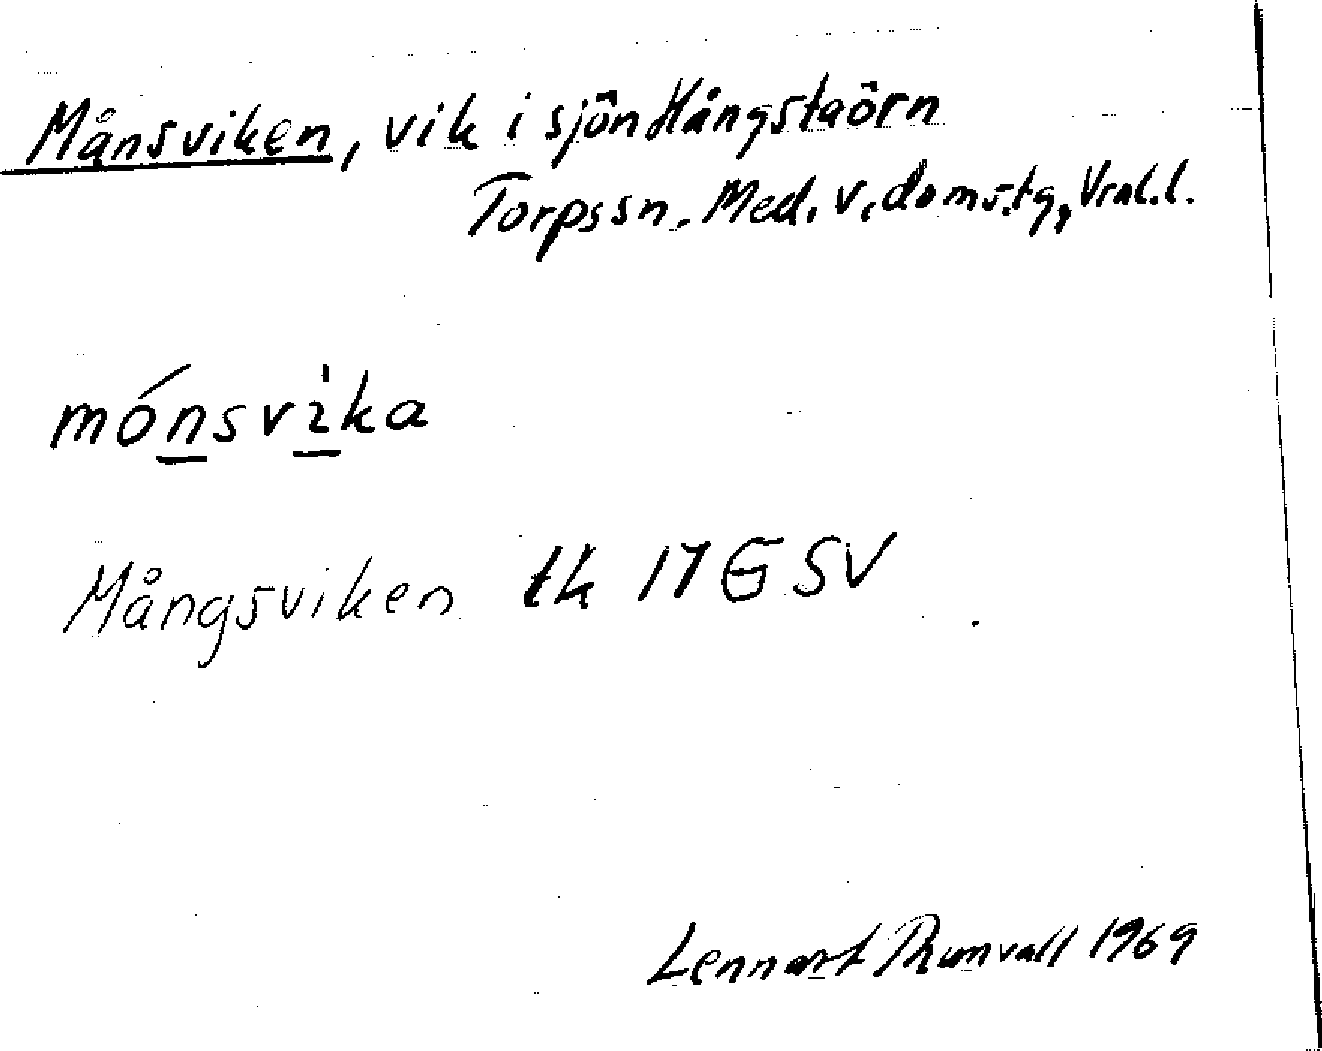 Månsviken, vik i sjön Hångstaörn
Torpssn. Med. v. doms.tg, Vnl.l.
mónsvika
Mångsviken tk 17G SV
Lennart Thunvall 1969